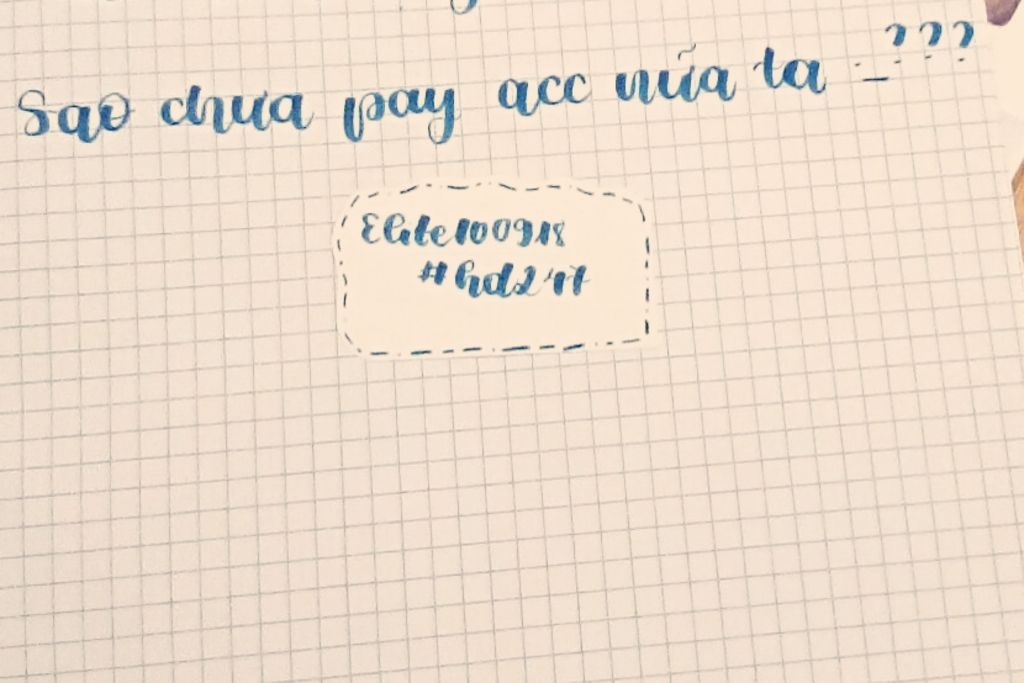 Sao chưa pay acc nữa ta :_:???
Elite100918
#hd247